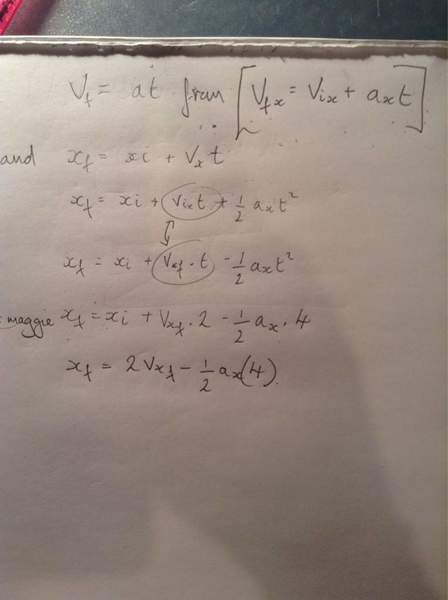 V_f = at from [V_fx = V_ix + a_x t]
and x_f = xi + V_x t
x_f = xi + V_ix t + 1/2 a_x t²
x_f = xi + V_xf . t - 1/2 a_x t²
maggie x_f = xi + V_xf . 2 - 1/2 a_x . 4
x_f = 2 V_xf - 1/2 a_x (4).